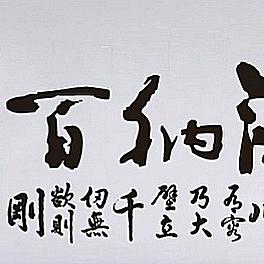 納百
有容乃大壁立千仞無欲則剛